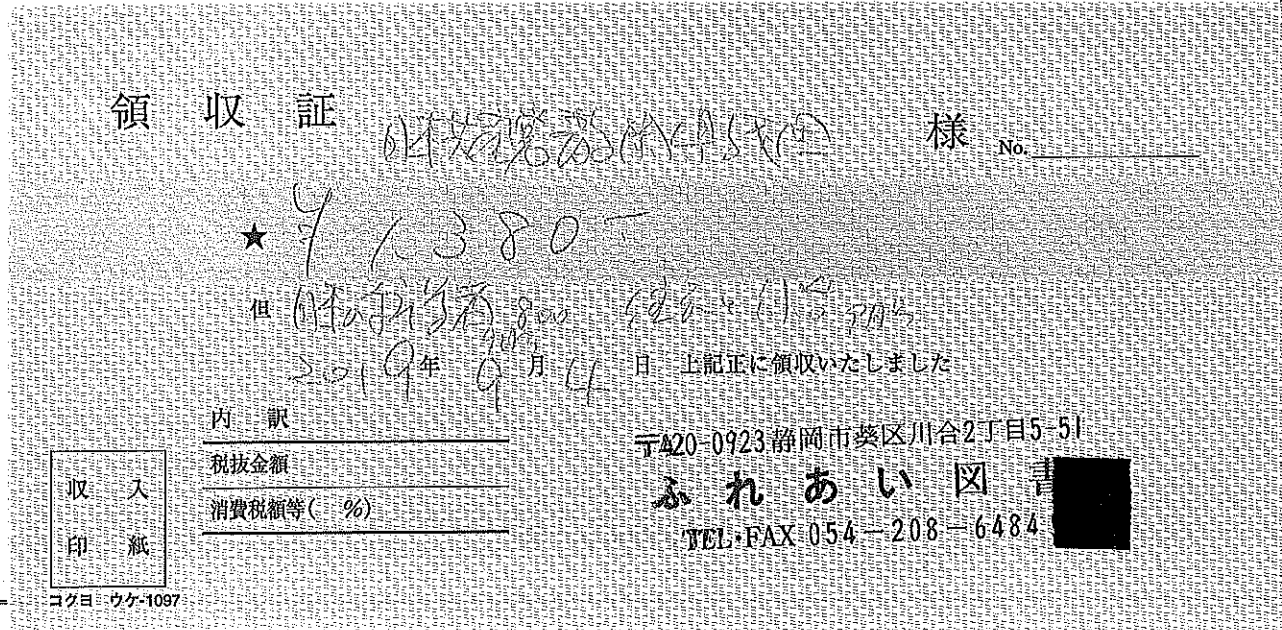 領収証 様 No.
★ ¥1,380-
但 800
2019年9月4日 上記正に領収いたしました
内訳
税抜金額
消費税額等( %)
収入
印紙
コクヨ ウケ-1097
〒420-0923 静岡市葵区川合2丁目5-51
ふれあい図書
TEL・FAX 054-208-6484